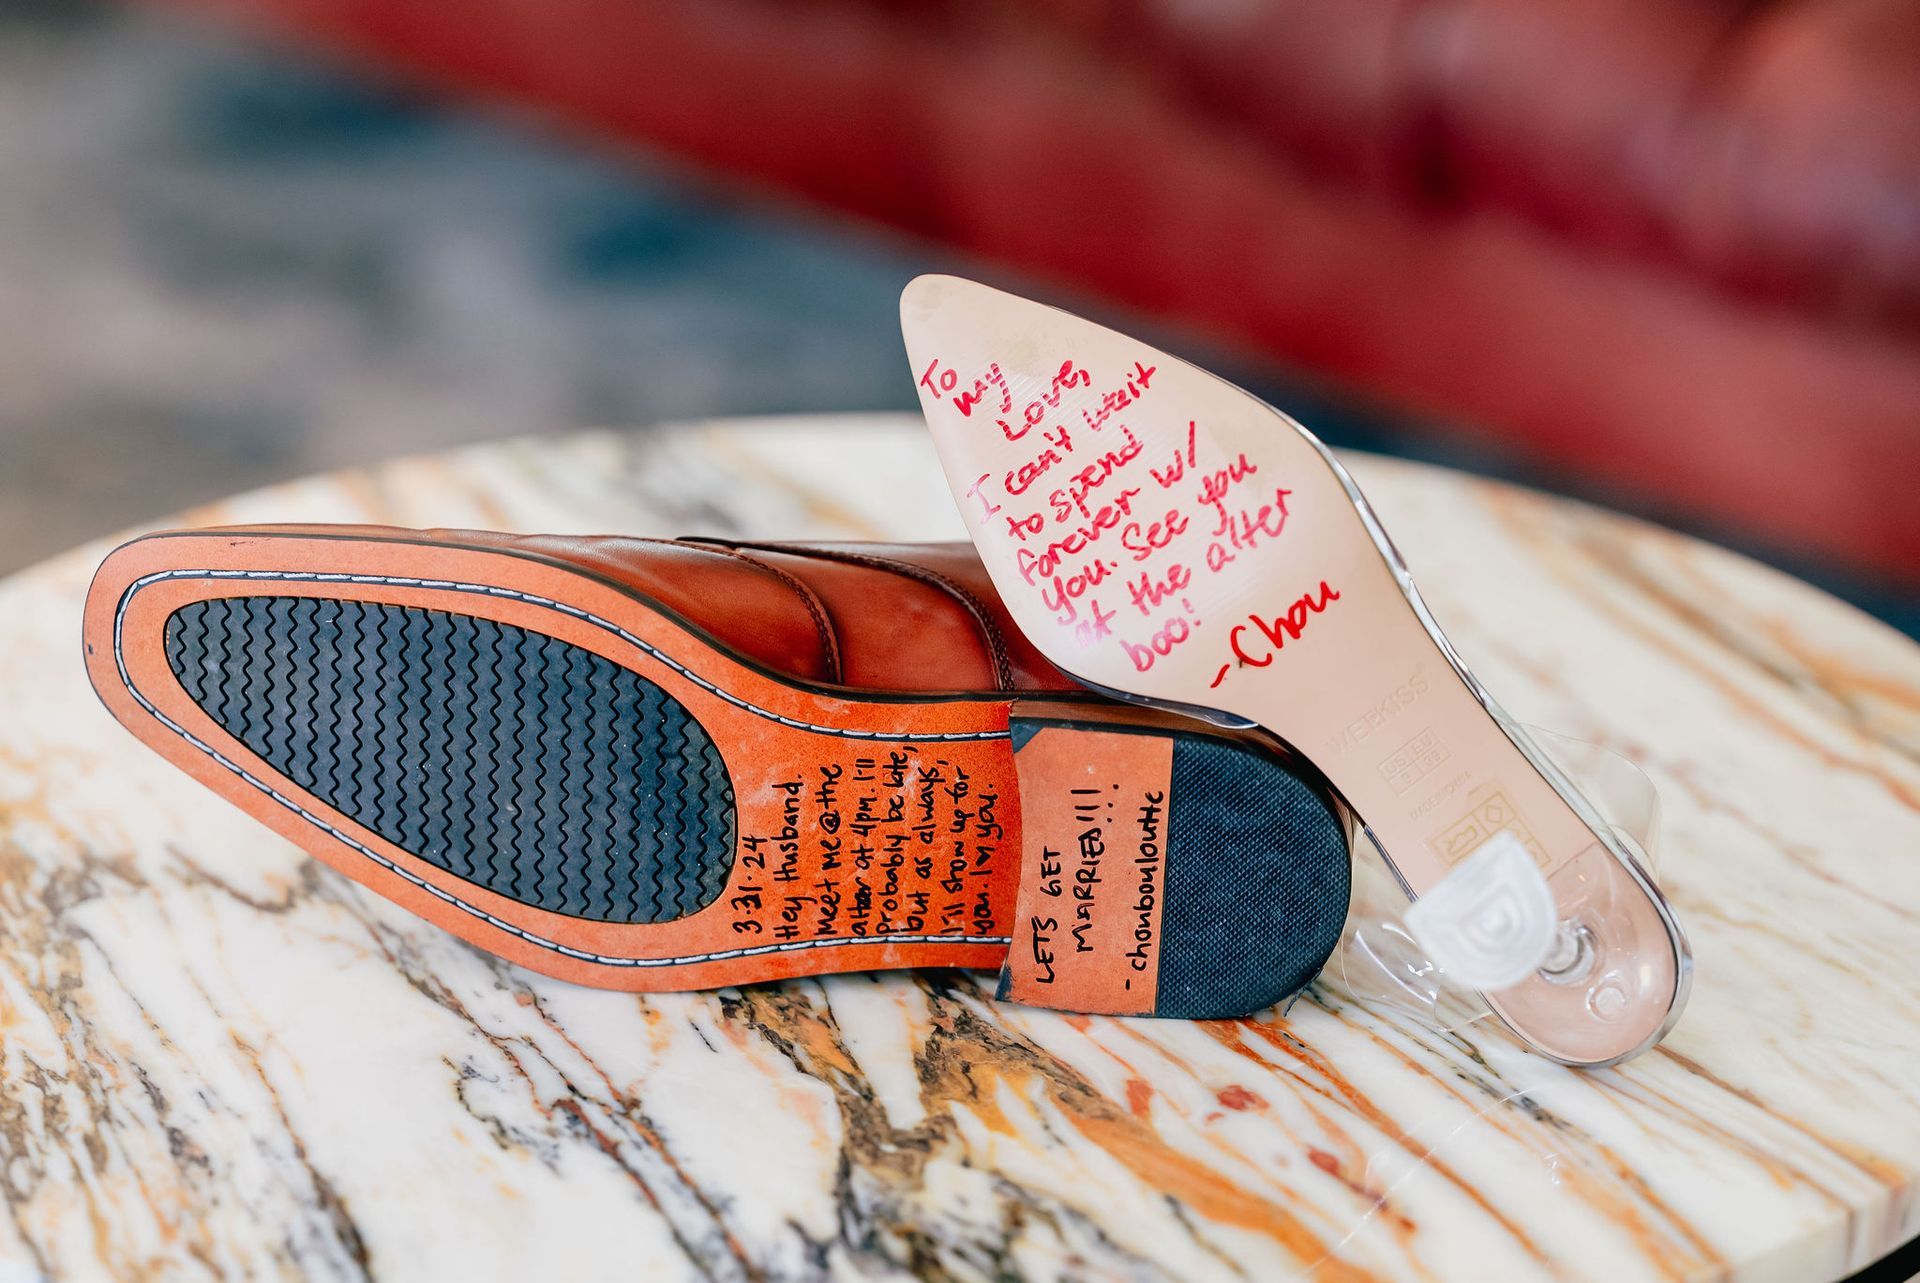 3·31·24
Hey Husband.
Meet me @ the
altar at 4pm. I'll
probably be late,
but as always,
I'll show up for
you. I ♥ you.
LETS GET
MARRIED!!!
- chonbouloutte
To
my
Love,
I can't wait
to spend
forever w/
you. See you
at the alter
boo!
- Chou
WETKISS
US EU